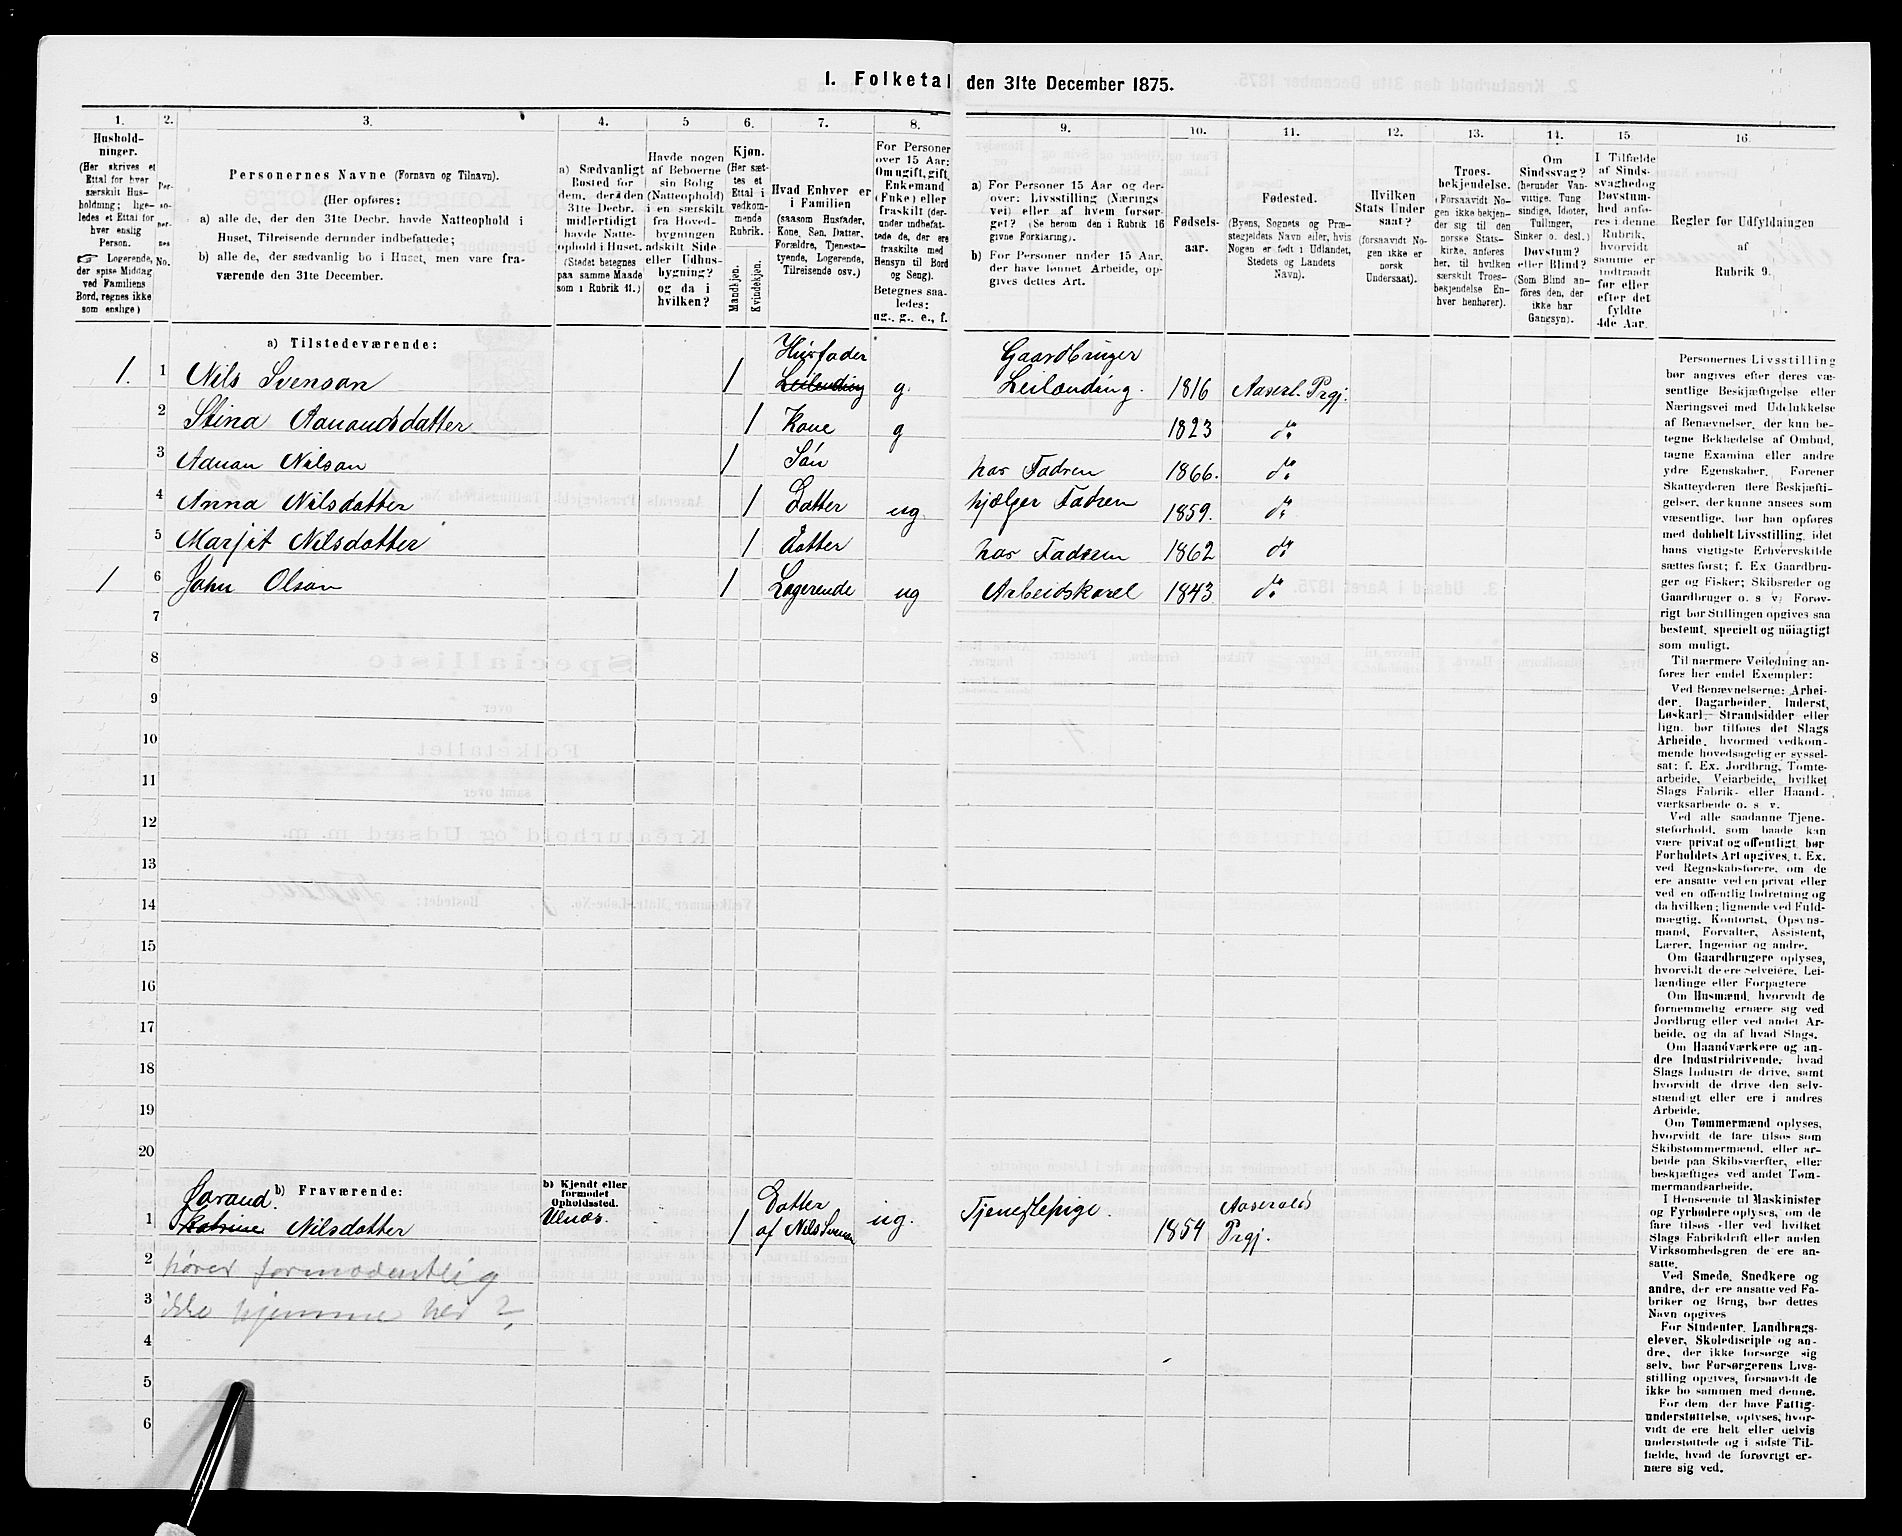 1. Folketal den 31te December 1875.
1.
Hushold-
ninger.
(Her skrives et
Ettal for hver
særskilt Hus-
holdning; lige-
ledes et Ettal for
hver enslig
Person.
☞ Logerende,
der spise Middag
ved Familiens
Bord, regnes ikke
som enslige)
2.
Per-
so-
ner-
nes
No.
3.
Personernes Navne (Fornavn og Tilnavn).
(Her opføres:
a) alle de, der den 31te Decbr. havde Natteophold i
Huset, Tilreisende derunder indbefattede;
b) alle de, der sædvanlig bo i Huset, men vare fra-
værende den 31te December.
4.
a) Sædvanligt
Bosted for
dem, der den
31te Decbr.
midlertidigt
havde Natte-
ophold i Huset.
(Stedet betegnes
paa samme Maade
som i Rubrik 11.)
5
Havde nogen
af Beboerne
sin Bolig
(Natteophold)
i en særskilt
fra Hoved-
bygningen
adskilt Side-
eller Udhus-
bygning?
og da i
hvilken?
6.
Kjøn.
(Her sæt-
tes et
Ettal i
vedkom-
mende
Rubrik.
Mandkjøn.
Kvindekjøn.
7.
Hvad Enhver er
i Familien
(saasom Husfader,
Kone, Søn, Datter,
Forældre, Tjeneste-
tyende, Logerende,
Tilreisende osv.)
8.
For Personer
over 15 Aar:
Om ugift, gift,
Enkemand
(Enke) eller
fraskilt (der-
under indbefat-
tede de, der ere
fraskilte med
Hensyn til Bord
og Seng).
Betegnes saa-
ledes:
ug., g., e., f.
9.
a) For Personer 15 Aar og der-
over: Livsstilling (Nærings
vei) eller af hvem forsør-
get? (Se herom den i Rubrik 16
givne Forklaring).
b) For Personer under 15 Aar,
der have lønnet Arbeide, op-
gives dettes Art.
10.
Fødsels-
aar.
11.
Fødested.
(Byens, Sognets og Præ-
stegjeldets Navn eller, hvis
Nogen er født i Udlandet,
Stedets og Landets
Navn).
12.
Hvilken
Stats Under
saat?
(forsaavidt No-
gen ikke er
norsk
Undersaat).
13.
Troes-
bekjendelse.
(Forsaavidt No-
gen ikke bekjen-
der sig til den
norske Stats-
kirke, anføres
her, til hvilken
særskilt Troes-
bekjendelse En-
hver henhører).
14.
Om
Sindssvag?
(herunder Van-
vittige, Tung
sindige, Idioter,
Tullinger,
Sinker o. desl.)
Døvstum?
eller Blind?
(Som Blind an-
føres den, der
ikke har
Gangsyn).
15
I Tilfælde
af Sinds-
svaghed og
Døvstum-
hed anfø-
res i denne
Rubrik,
hvorvidt
samme er
indtraadt
før eller
efter det
fyldte
4de Aar.
16
Regler for Udfyldningen
af
Rubrik 9.
a) Tilstedeværende:
Husfader
Gaardbruger
1. 1 Nils Svenson 1 Leilending g. Leilænding. 1816 Aaserl. Prgj.
2 Stina Aanondsdatter 1 Kone g 1823 do
3 Adnan Nilson 1 Søn hos Fadren 1866. do
4 Anna Nilsdatter 1 Datter ug. hjælper Fadren 1859. do
5 Marjit Nilsdatter 1 datter hos Fadren 1862 do
1 6 John Olson 1 Logerende ug Arbeidskarel 1843 do
7
8
9
10
11
12
13
14
15
16
17
18
19
20
b) Fraværende:
b) Kjendt eller
formodet
Opholdssted.
Gorand. Datter Aaserals
1 Katrine Nilsdatter 1 af Nils Svenson ug. Tjenestepige. 1854 Prgj.
2 hører formodentlig
3 ikke hjemme her?
4
5
6
Personernes Livsstilling
bør angives efter deres væ-
sentlige Beskjæftigelse eller
Næringsvei med Udelukkelse
af Benævnelser, der kun be-
tegne Beklædelse af Ombud,
tagne Examina eller andre
ydre Egenskaber. Forener
Skatteyderen flere Beskjæfti-
gelser, der kunne ansees som
væsentlige, bør han opføres
med dobbelt Livsstilling, idet
hans vigtigste Erhvervskilde
sættes først; f. Ex Gaardbru-
ger og Fisker; Skibsreder og
Gaardbruger o. s v; Forøv-
rigt bør Stillingen opgives saa
bestemt, specielt og nöiagtigt
som muligt.
Til nærmere Veiledning an-
føres her endel Exempler:
Ved Benævnelserne: Arbei-
der, Dagarbeider, Inderst,
Løskarl, Strandsidder eller
lign. bør tilføres det Slags
Arbeide, hvormed vedkom-
mende hovedsagelig er syssel-
sat: f. Ex. Jordbrug, Tømte-
arbeide, Veiarbeide, hvilket
Slags Fabrik- eller Haand-
værksarbeide o. s v.
Ved alle saadanne Tjene-
steforhold, som baade kan
være privat og offentligt, bør
Forholdets Art opgives, t. Ex.
ved Regnskabsførere, om de
ere ansatte ved en privat eller
ved en offentlig Indretning og
da hvilken; lignende ved Fuld-
mægtig, Kontorist, Opsyns-
mand, Forvalter, Assistent,
Lærer, Ingeniør og andre.
Om Gaardbrugere oplyses,
hvorvidt de ere Selveiere, Lei-
lændinge eller Forpagtere
Om Husmænd, hvorvidt de
fornemmelig ernære sig ved
Jordbrug eller ved andet Ar-
beide, og da af hvad Slags.
Om Haandværkere og an-
dre Industridrivende, hvad
Slags Industri de drive, samt
hvorvidt de drive den selv-
stændigt eller ere i andres
Arbeide.
Om Tømmermænd oplyses,
hvorvidt de fare tilsøs som
Skibstømmermænd, eller ar-
beide paa Skibsværfter, eller
beskjæftiges ved andet Tøm-
mermandsarbeide.
I Henseende til Maskinister
og Fyrbødere oplyses, om de
fare tilsøs eller ved hvilket
Slags Fabrikdrift eller anden
Virksomhed de ere an-
satte.
Ved Smede, Snedkere og
andre, der ere ansatte ved Fa-
briker og Brug, bør dettes
Navn opgives
For Studenter, Landbrugs-
elever, Skoledisciple og an-
dre, der ikke forsørge sig
selv, bør Forsørgerens Livs-
stilling opgives, forsaavidt de
ikke bo sammen med denne.
For dem, der have Fattig-
understøttelse, oplyses, hvor-
vidt de ere helt eller delvis
understøttede og i sidste Til-
fælde, hvad de forøvrigt er-
nære sig ved.